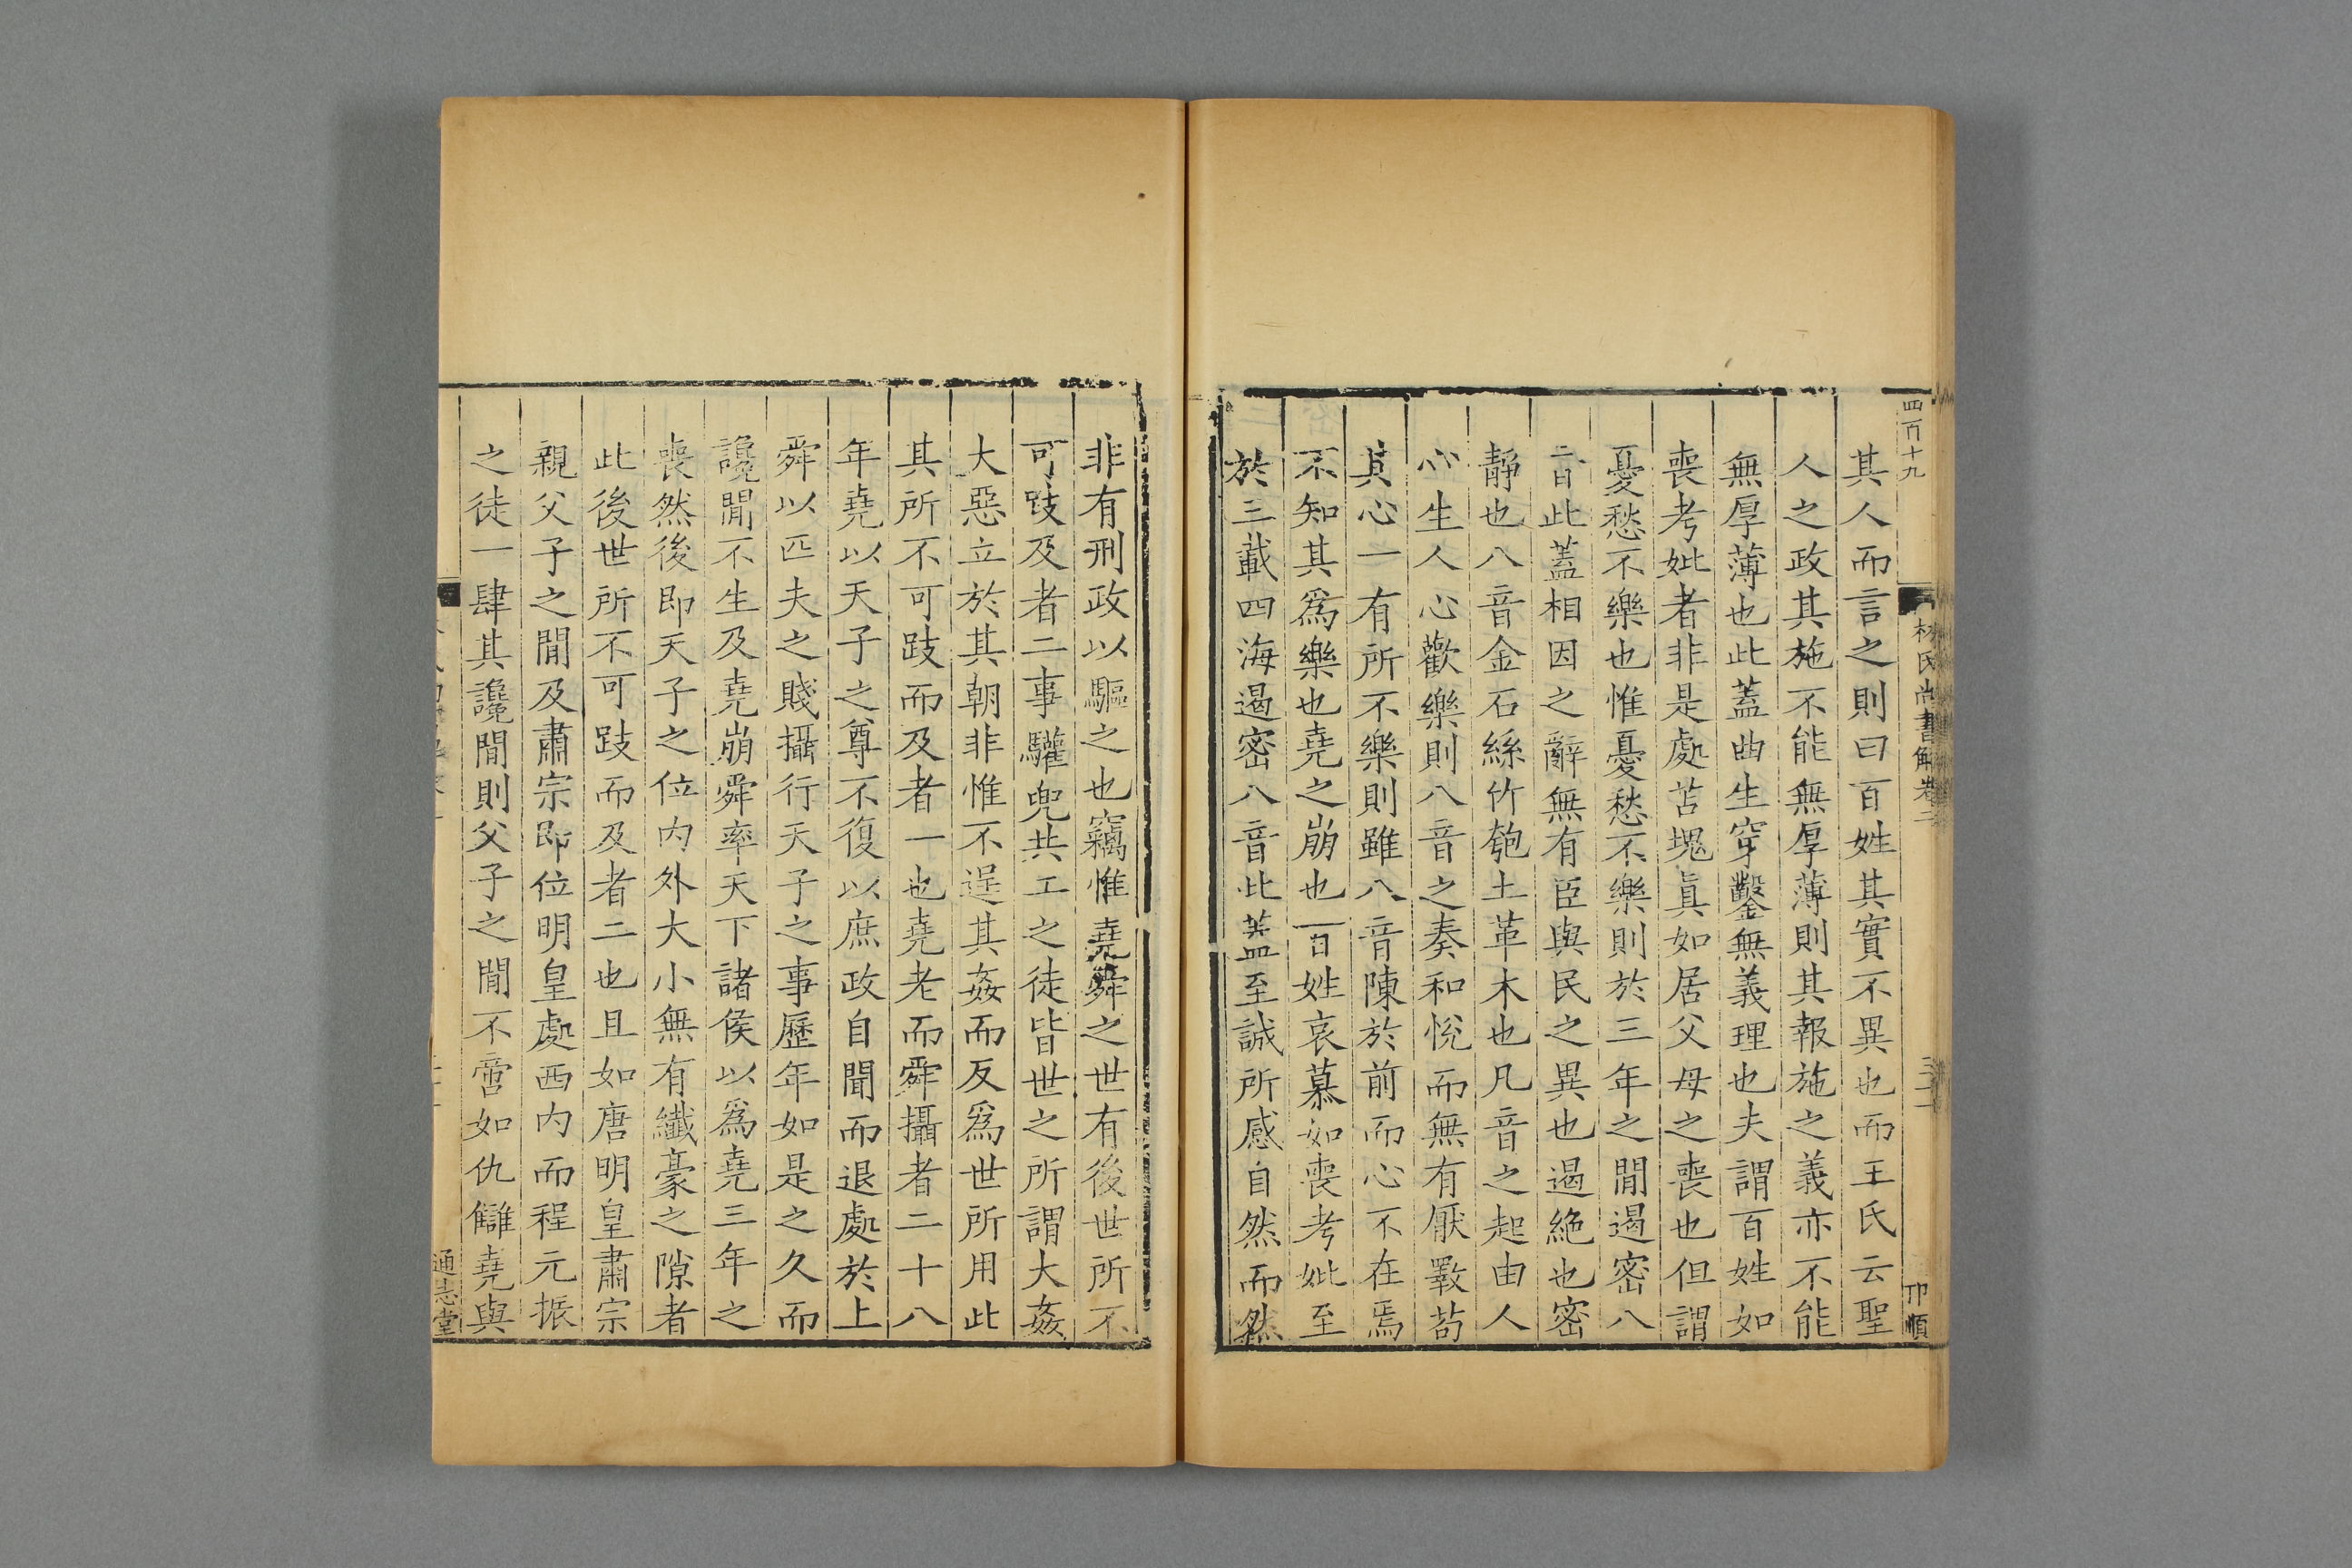 四百十九
林氏尚書解卷二
卭順
其人而言之則曰百姓其實不異也而王氏云聖
人之政其施不能無厚薄則其報施之義亦不能
無厚薄也此蓋曲生穿鑿無義理也夫謂百姓如
喪考妣者非是處苫塊眞如居父母之喪也但謂
憂愁不樂也惟憂愁不樂則於三年之閒遏密八
音此蓋相因之辭無有臣與民之異也遏絶也密
靜也八音金石絲竹匏土革木也凡音之起由人
心生人心歡樂則八音之奏和悅而無有厭斁苟
其心一有所不樂則雖八音陳於前而心不在焉
不知其爲樂也堯之崩也百姓哀慕如喪考妣至
於三載四海遏密八音此蓋至誠所感自然而然
非有刑政以驅之也竊惟堯舜之世有後世所不
可跂及者二事驩兜共工之徒皆世之所謂大姦
大惡立於其朝非惟不逞其姦而反爲世所用此
其所不可跂而及者一也堯老而舜攝者二十八
年堯以天子之尊不復以庶政自聞而退處於上
舜以匹夫之賤攝行天子之事歷年如是之久而
讒閒不生及堯崩舜率天下諸侯以爲堯三年之
喪然後即天子之位內外大小無有纖豪之隙者
此後世所不可跂而及者二也且如唐明皇肅宗
親父子之閒及肅宗即位明皇處西內而程元振
之徒一肆其讒閒則父子之閒不啻如仇讎堯與
通志堂